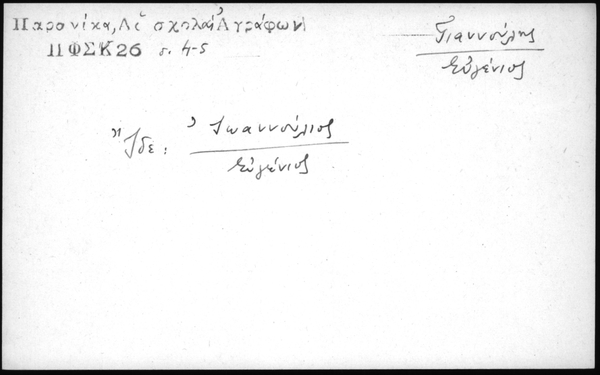 Παρονίκα, Αἱ σχολαὶ Ἀγράφων
ΠΦΣΚ26 σ. 4-5
Γιαννούλης
Εὐγένιος
Ἴδε: Ἰωαννούλιος
Εὐγένιος